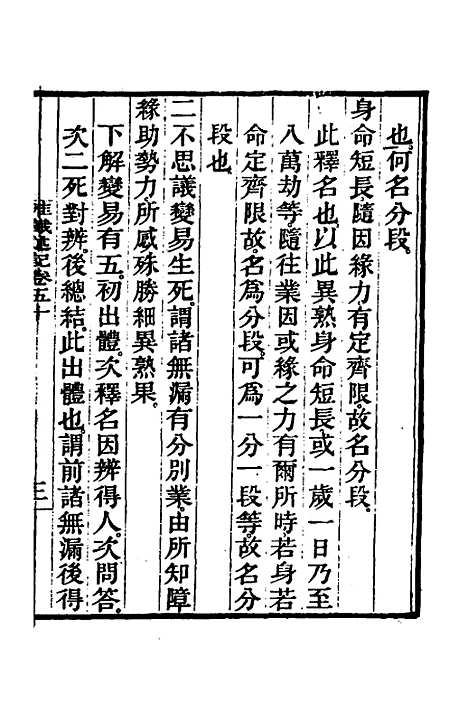 也。何名分段。
身命短長。隨因緣力有定齊限。故名分段。
此釋名也。以此異熟身命短長。或一歲一日乃至
八萬劫等。隨往業因或緣之力有爾所時。若身若
命定齊限故。名爲分段。可爲一分一段等。故名分
段也。
二不思議變易生死。謂諸無漏有分別業。由所知障
緣助勢力。所感殊勝細異熟果。
下解變易有五。初出體。次釋名因辨得人。次問答。
次二死對辨。後總結。此出體也。謂前諸無漏後得
唯識述記卷五十
三